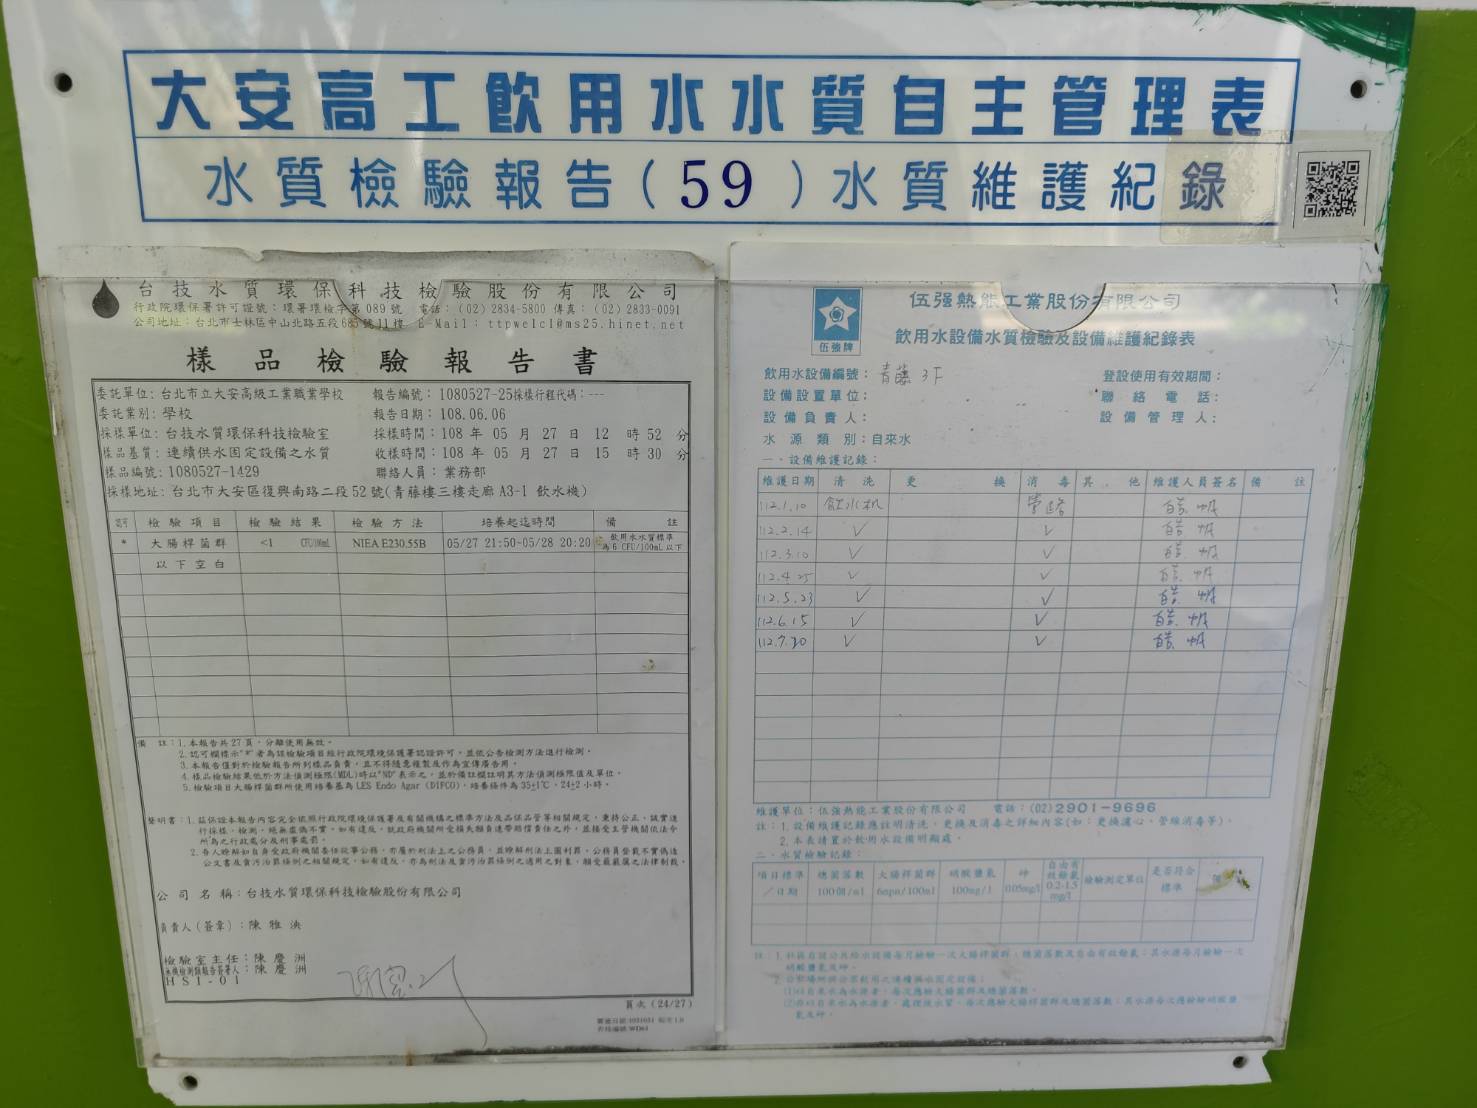 大安高工飲用水水質自主管理表
水質檢驗報告(59)水質維護紀錄
台技水質環保科技檢驗股份有限公司
行政院環保署許可證號：環署環檢字第089號 電話：(02)2834-5800 傳真：(02)2833-0091
公司地址：台北市士林區中山北路五段685號11樓 E-Mail：ttpwelcl@ms25.hinet.net
樣品檢驗報告書
委託單位：台北市立大安高級工業職業學校 報告編號：1080527-25採樣行程代碼：---
委託業別：學校 報告日期：108.06.06
採樣單位：台技水質環保科技檢驗室 採樣時間：108 年 05 月 27 日 12 時 52 分
樣品基質：連續供水固定設備之水質 收樣時間：108 年 05 月 27 日 15 時 30 分
樣品編號：1080527-1429 聯絡人員：業務部
採樣地址：台北市大安區復興南路二段52號(青藤樓三樓走廊 A3-1 飲水機)
認可 檢驗項目 檢驗結果 檢驗方法 培養起迄時間 備註
* 大腸桿菌群 <1 CFU/100mL NIEA E230.55B 05/27 21:50~05/28 20:20 飲用水水質標準
為6 CFU/100mL以下
以下空白
備 註：1.本報告共27頁，分離使用無效。
2.認可欄標示"*"者為該檢驗項目經行政院環境保護署認證許可，並依公告檢測方法進行檢測。
3.本報告僅對於檢驗報告所列樣品負責，且不得隨意複製及作為宣傳廣告用。
4.樣品檢驗結果低於方法偵測極限(MDL)時以"ND"表示之，並於備註欄註明其方法偵測極限值及單位。
5.檢驗項目大腸桿菌群所使用培養基為LES Endo Agar (DIFCO)，培養條件為35±1℃，24±2小時。
聲明書：1.茲保證本報告內容完全依照行政院環境保護署及有關機構之標準方法及品保品管等相關規定，秉持公正、誠實進
行採樣、檢測。絕無虛偽不實，如有違反，就政府機關所受損失願負連帶賠償責任之外，並接受主管機關依法令
所為之行政處分及刑事處罰。
2.吾人瞭解如自身受政府機關委任從事公務，亦屬於刑法上之公務員，並瞭解刑法上圖利罪、公務員登載不實偽造
公文書及貪污治罪條例之相關規定，如有違反，亦為刑法及貪污治罪條例之適用之對象，願受最嚴厲之法律制裁。
公司名稱：台技水質環保科技檢驗股份有限公司
負責人(簽章)：陳雅泱
檢驗室主任：陳慶洲
無機檢測類報告簽署人：陳慶洲
HSI-01
頁次 (24/27)
伍強牌
伍强熱能工業股份有限公司
飲用水設備水質檢驗及設備維護紀錄表
飲用水設備編號：青藤 3F 登設使用有效期間：
設備設置單位： 聯絡電話：
設備負責人： 設備管理人：
水源類別：自來水
一、設備維護記錄：
維護日期 清洗 更換 消毒 其他 維護人員簽名 備註
112.1.10 飲水机 管路
112.2.14 ✓ ✓
112.3.10 ✓ ✓
112.4.25 ✓ ✓
112.5.23 ✓ ✓
112.6.15 ✓ ✓
112.7.20 ✓ ✓
維護單位：伍強熱能工業股份有限公司 電話：(02)2901-9696
註：1.設備維護記錄應註明清洗、更換及消毒之詳細內容(如：更換濾心、管線消毒等)。
2.本表請置於飲用水設備明顯處。
二、水質檢驗記錄：
項目標準/日期 總菌落數 100個/ml 大腸桿菌群 6mpn/100ml 硝酸鹽氮 100mg/l 砷 0.05mg/l 自由有效餘氯 0.2-1.5 mg/l 檢驗測定單位 是否符合標準 備